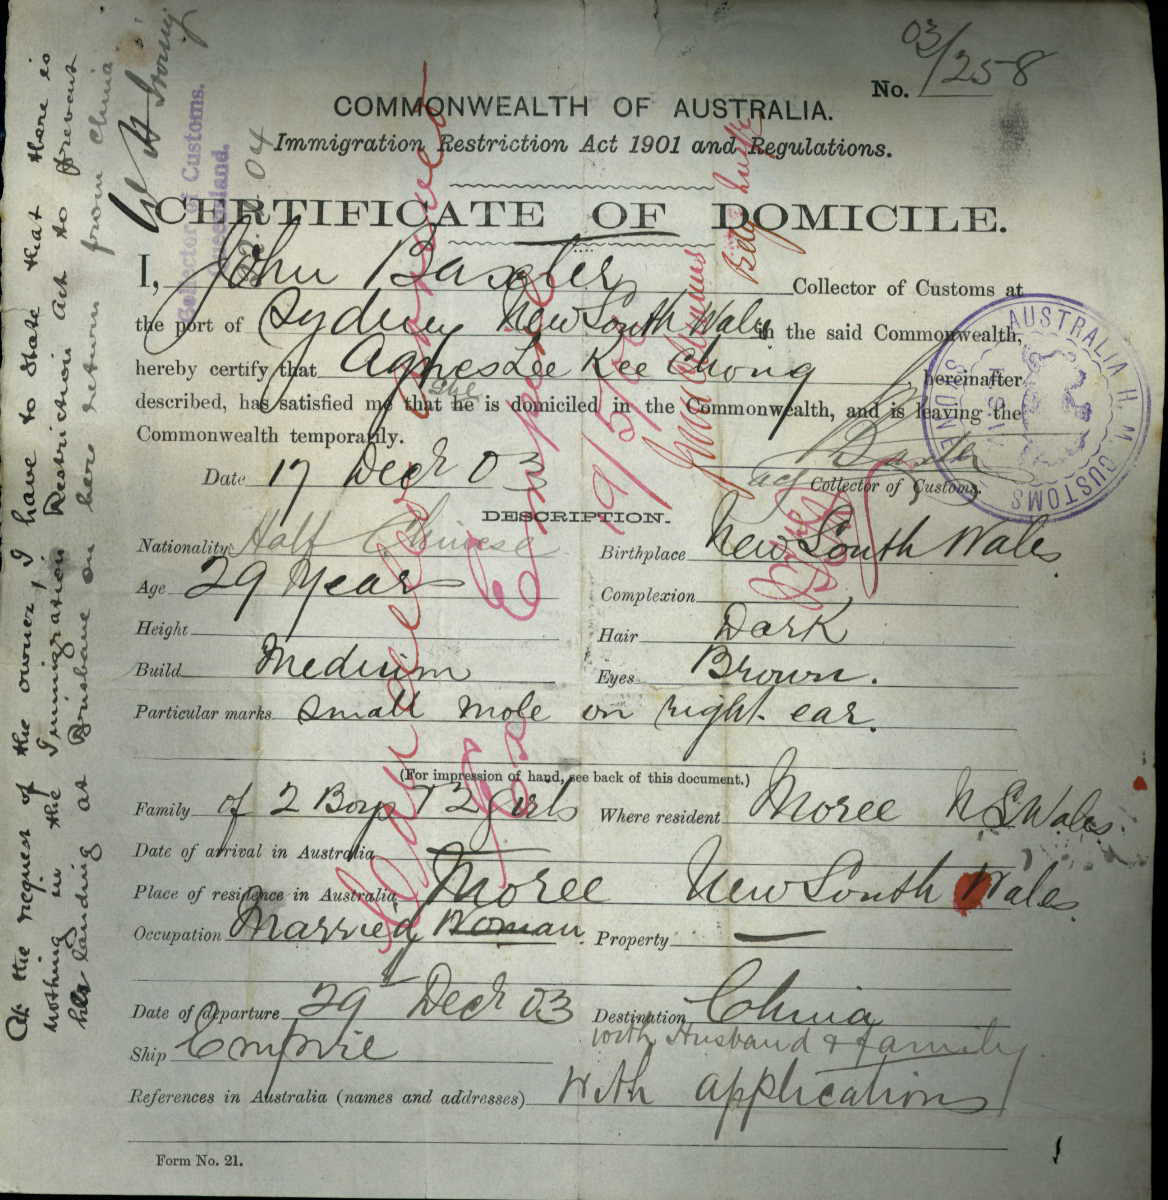 No. 03/258
COMMONWEALTH OF AUSTRALIA.
Immigration Restriction Act 1901 and Regulations.
CERTIFICATE OF DOMICILE.
I, John Baxter Collector of Customs at
the port of Sydney New South Wales in the said Commonwealth,
hereby certify that Agnes Lee Kee Chong , hereinafter
described, has satisfied me that he she is domiciled in the Commonwealth, and is leaving the
Commonwealth temporarily.
Date 17 Decr 03
J Baxter
actg Collector of Customs.
DESCRIPTION.
Nationality Half Chinese
Birthplace New South Wales
Age 29 Years
Complexion
Height
Hair Dark
Build Medium
Eyes Brown.
Particular marks small mole on right ear.
(For impression of hand, see back of this document.)
Family of 2 Boys & 2 girls
Where resident Moree N S Wales.
Date of arrival in Australia
Place of residence in Australia Moree New South Wales.
Occupation Married Woman.
Property —
Date of departure 29 Decr 03
Destination China
with Husband & family
Ship Empire
References in Australia (names and addresses) With applications
Form No. 21.
At the request of the owner, I have to state that there is
nothing in the Immigration Restriction Act to prevent
her landing at Brisbane on here return from China.
Collector of Customs.
Queensland.
04
H. M. CUSTOMS
AUSTRALIA
Cancelled
Empire
19/5/